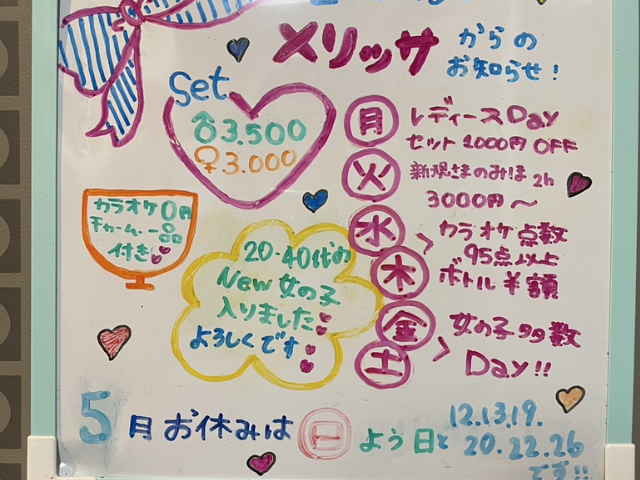 メリッサ からの
お知らせ!
Set
♂3.500
♀3.000
月 レディースDay
セット 1000円 OFF
火 新規さまのみほ 2h
3000円~
水 木 カラオケ点数
95点以上
ボトル半額
金 土 女の子多数
Day!!
カラオケ0円
チャーム一品
付き
20-40代の
New 女の子
入りました
よろしくです
5月お休みは 日よう日と 12.13.19.
20.22.26
です!!